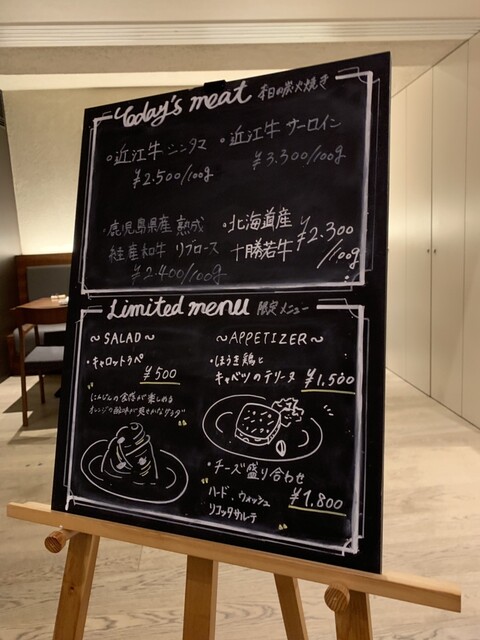 Today's meat 本日の炭火焼き
・近江牛シンタマ
¥2.500/100g
・近江牛 サーロイン
¥3.300/100g
・鹿児島県産 熟成
経産和牛 リブロース
¥2.400/100g
・北海道産
十勝若牛
¥2.300
/100g
Limited menu 限定メニュー
～SALAD～
・キャロットラペ
¥500
"にんじんの食感が楽しめる
オレンジの酸味が爽やかなサラダ"
～APPETIZER～
・ほうき鶏と
キャベツのテリーヌ ¥1,500
・チーズ盛り合わせ
"ハード、ウォッシュ
リコッタサルーテ"
¥1,800